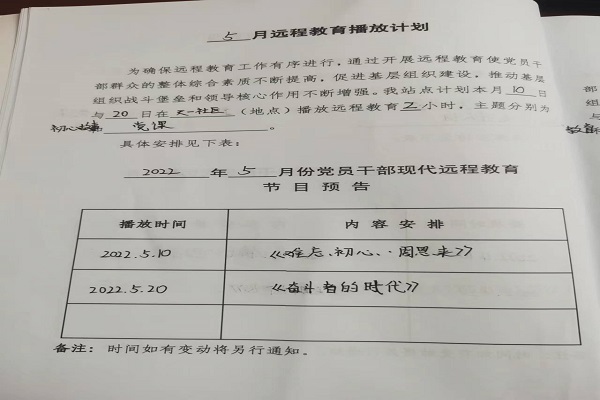 5月远程教育播放计划
为确保远程教育工作有序进行,通过开展远程教育使党员干
部群众的整体综合素质不断提高,促进基层组织建设,推动基层
组织战斗堡垒和领导核心作用不断增强。我站点计划本月10日
与20日在 社区(地点)播放远程教育2小时,主题分别为
初心 党课。
具体安排见下表:
2022年5月份党员干部现代远程教育
节目预告
播放时间 内容安排
2022.5.10 《难忘初心·周恩来》
2022.5.20 《奋斗者的时代》
备注:时间如有变动将另行通知。
部
组
与